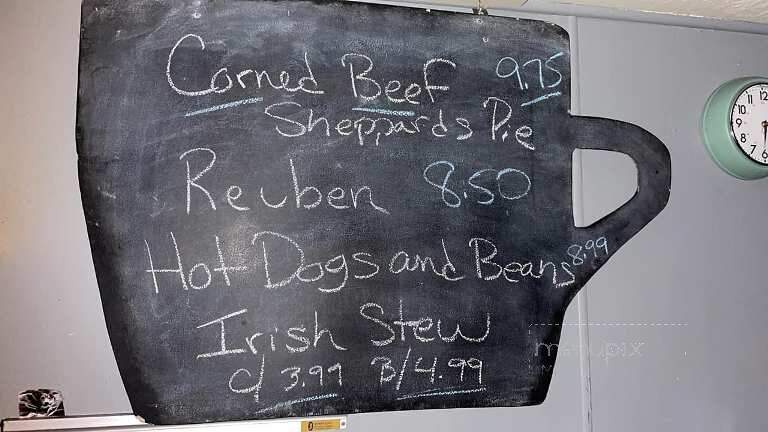 Corned Beef 9.75
Sheppards Pie
Reuben 8.50
Hot Dogs and Beans 8.99
Irish Stew
C/3.99 B/4.99
menupix
12
11
10
9
8
7
6